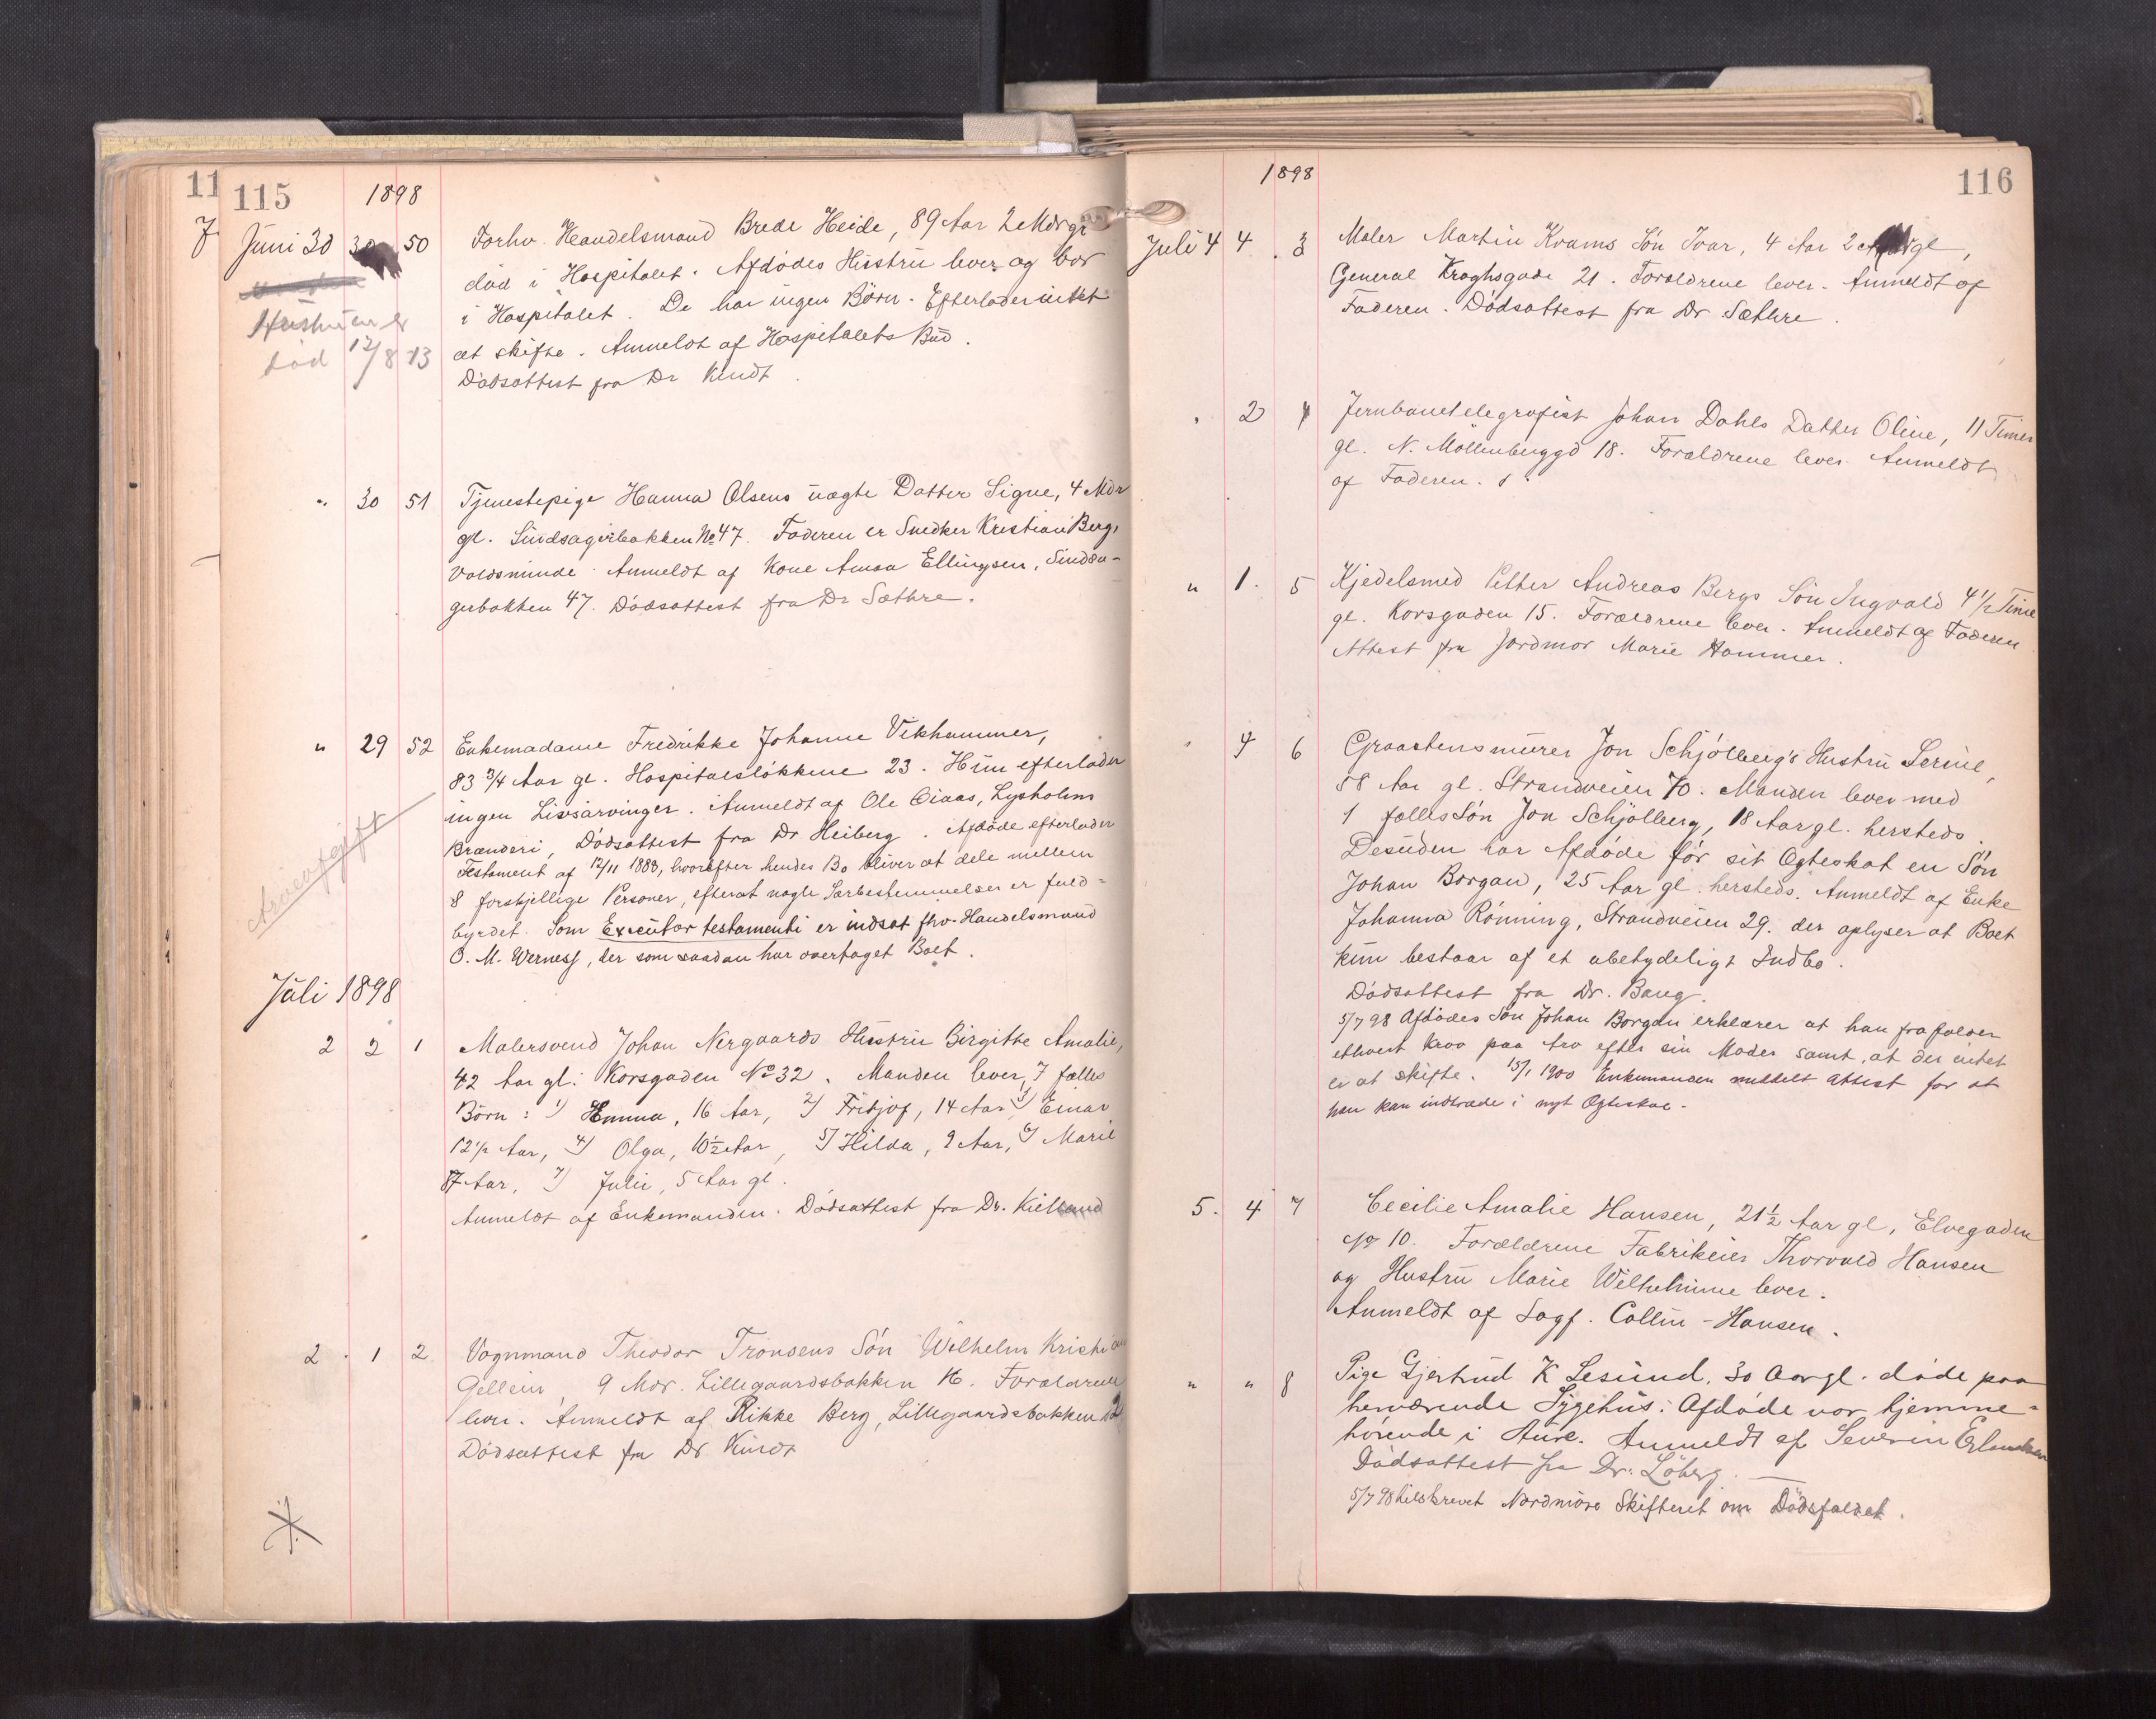 11
115
1898
Juni 30 30 50 Forhv. Handelsmand Brede Heide, 89 Aar 2 Mdr gl
død i Hospitalet. Afdødes Hustru lever og bor
i Hospitalet. De har ingen Börn. Efterlader intet
at skifte. Anmeldt af Hospitalets Bud.
Dödsattest fra Dr Kindt.
Hustruen er
död 12/8 13
" 30 51 Tjenestepige Hanna Olsens uægte Datter Signe, 4 Mdr
gl. Sindsagerbakken No 47. Faderen er Snedker Kristian Berg,
Voldsminde. Anmeldt af Kone Anna Ellingsen, Sindsa-
gerbakken 47. Dödsattest fra Dr Sæthre.
" 29 52 Enkemadame Fredrikke Johanne Vikhammer,
83 3/4 Aar gl. Hospitalslökkene 23. Hun efterlader
ingen Livsarvinger. Anmeldt af Ole Oiaas, Lysholms
Brænderi, Dödsattest fra Dr Heiberg. Afdöde efterlader
Testament af 12/11 1880, hvorefter hendes Bo bliver at dele mellem
8 forskjellige Personer, efterat nogle Særbestemmelser er fuld-
byrdet. Som Executor testamenti er indsat fhv. Handelsmand
O. M. Werness, der som saadan har overtaget Boet.
Arveafgift
Juli 1898
2 2 1 Malersvend Johan Nergaards Hustru Birgitte Amalie,
42 Aar gl. Korsgaden No 32. Manden lever, 7 fælles
Börn: 1) Emma, 16 Aar, 2) Fritjof, 14 Aar, 3) Einar
12 1/2 Aar, 4) Olga, 10 1/2 Aar, 5) Hilda, 9 Aar, 6) Marie
7 Aar, 7) Julie, 5 Aar gl.
Anmeldt af Enkemanden. Dödsattest fra Dr. Kielland
2 1 2 Vognmand Theodor Tronsens Sön Wilhelm Kristian
Gellein, 9 Mdr. Lillegaardsbakken 16. Forældrene
lever. Anmeldt af Rikke Berg, Lillegaardsbakken 12
Dödsattest fra Dr Kindt
1898
116
Juli 4 4 3 Maler Martin Kvams Sön Ivar, 4 Aar 2 gl,
General Kraghsgade 21. Forældrene lever. Anmeldt af
Faderen. Dödsattest fra Dr Sæthre.
" 2 4 Jernbanetelegrafist Johan Dahls Datter Oline, 11 Timer
gl. N. Möllenberggd 18. Forældrene lever. Anmeldt
af Faderen.
" 1. 5 Kjedelsmed Petter Andreas Bergs Sön Ingvald 4 1/2 Time
gl. Korsgaden 15. Forældrene lever. Anmeldt af Faderen
Attest fra Jordmor Marie Hammer.
" 4 6 Graastensmurer Jon Schjölberg's Hustru Serine,
58 Aar gl. Strandveien 70. Manden lever med
1 fælles Sön Jon Schjölberg, 18 Aar gl. hersteds.
Desuden har Afdöde för sit Ogteskab en Sön
Johan Borgan, 25 Aar gl. hersteds. Anmeldt af Enke
Johanna Rönning, Strandveien 29. der oplyser at Boet
kun bestaar af et ubetydeligt Indbo.
Dödsattest fra Dr. Bang.
5/7 98 Afdödes Sön Johan Borgan erklærer at han frafalder
ethvert Krav paa Arv efter sin Moder samt, at der intet
er at skifte. 15/1 1900 Enkemanden meddelt Attest for at
han kan indtræde i nyt Ogteskab.
5. 4 7 Cecilie Amalie Hansen, 21 1/2 Aar gl, Elvegaden
No 10. Forældrene Fabrikeier Thorvald Hansen
og Hustru Marie Wilhelmine lever.
Anmeldt af Sagf. Collin-Hansen.
" " 8 Pige Gjertrud K Lesund, 30 Aar gl. döde paa
herværende Sygehus. Afdöde var hjemme-
hörende i Aure. Anmeldt af Severin Erlandsen
Dödsattest fra Dr. Löberg. —
5/7 98 tilskrevet Nordmöre Skifteret om Dödsfaldet.